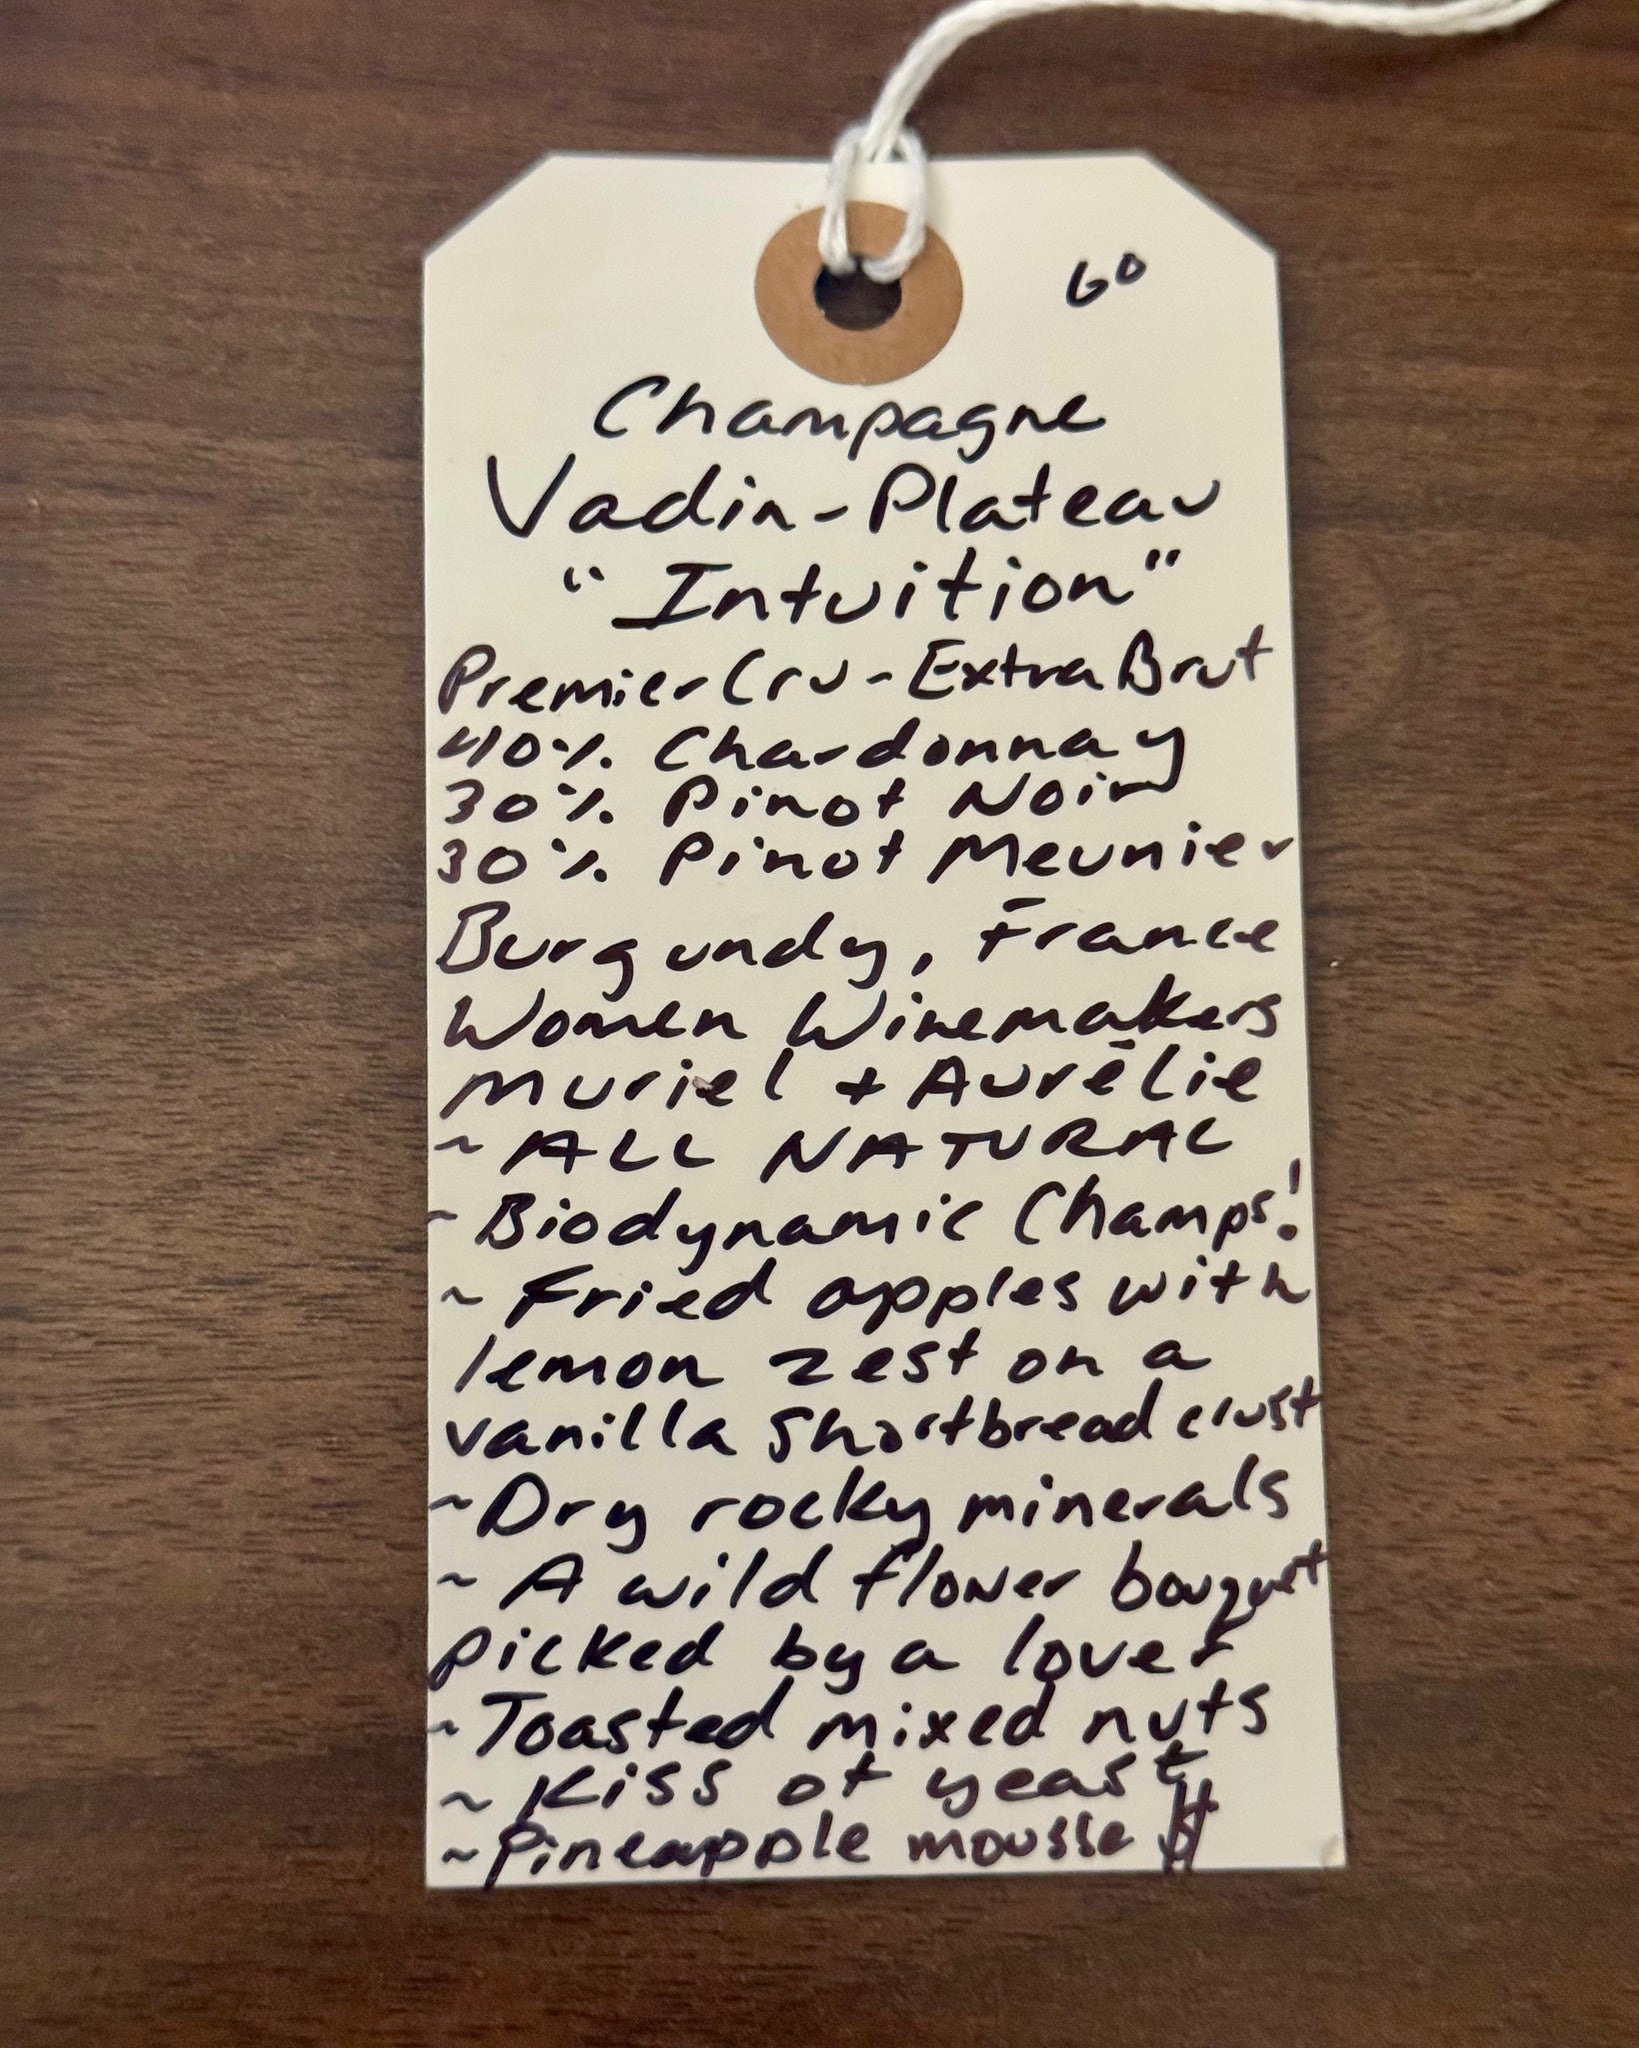 60
Champagne
Vadin-Plateau
"Intuition"
Premier Cru-Extra Brut
40% Chardonnay
30% Pinot Noir
30% Pinot Meunier
Burgundy, France
Women Winemakers
Muriel + Aurélie
~ ALL NATURAL
~ Biodynamic Champs!
~ Fried apples with
lemon zest on a
vanilla shortbread crust
~ Dry rocky minerals
~ A wild flower bouquet
picked by a lover
~ Toasted mixed nuts
~ Kiss of yeast
~ Pineapple mousse